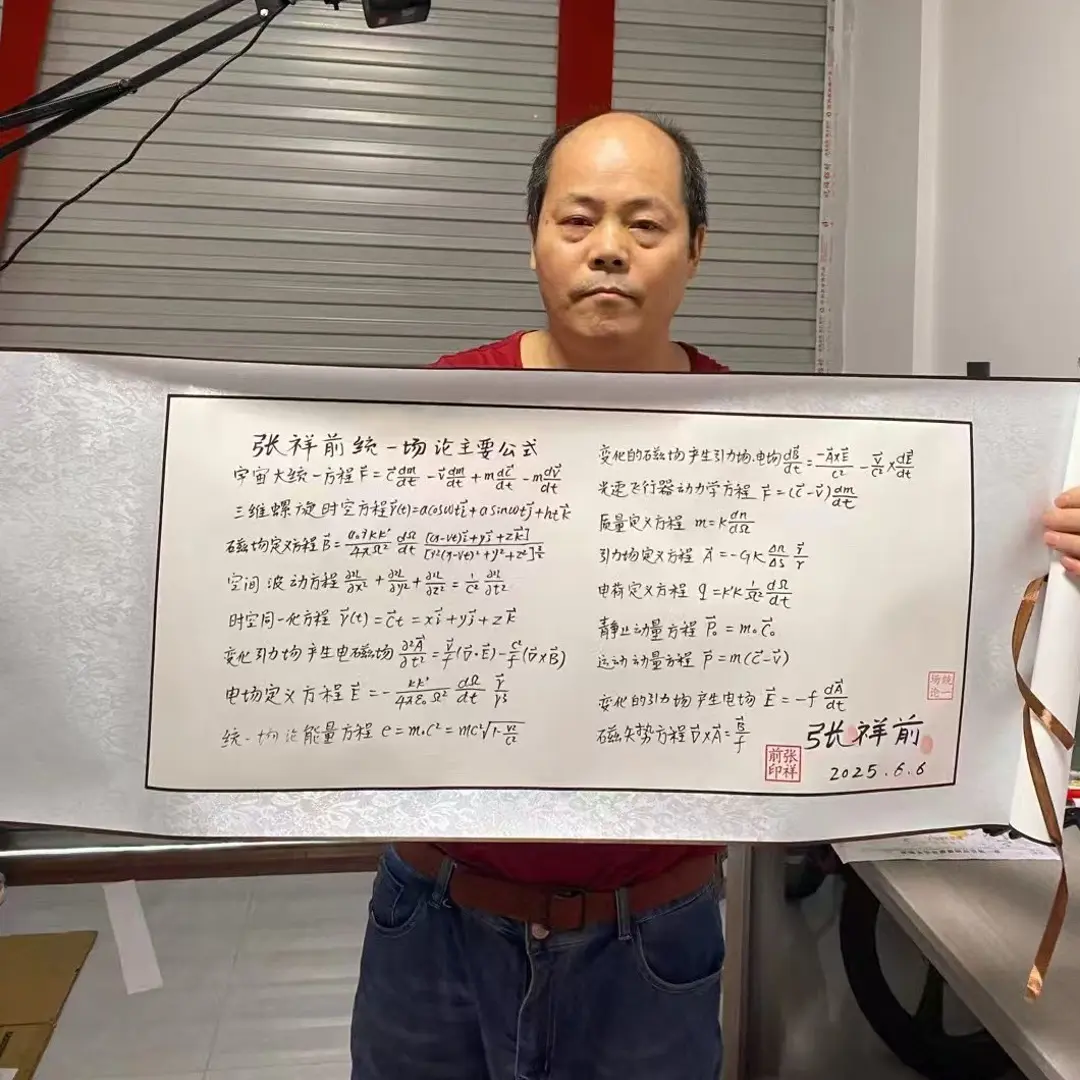 张祥前统一场论主要公式
宇宙大统一方程 F⃗ = C⃗ dm/dt − V⃗ dm/dt + m dC⃗/dt − m dV⃗/dt
三维螺旋时空方程 r⃗(t)=a cosωt i⃗ + a sinωt j⃗ + ht k⃗
磁场定义方程 B⃗ =
空间波动方程 ∂²L/∂x² + ∂²L/∂y² + ∂²L/∂z² = 1/c² ∂²L/∂t²
时空同一化方程 r⃗(t) = C⃗t = xi⃗ + yj⃗ + zk⃗
变化引力场产生电磁场 ∂²A⃗/∂t² = V⃗/f (∇⃗·E⃗) − C²/f (∇⃗×B⃗)
电场定义方程 E⃗ = − kk'/4πε₀Ω² dΩ/dt r⃗/r³
统一场论能量方程 e = m₀C² = mC²√(1−V²/C²)
变化的磁场产生引力场.电场 dB⃗/dt = −A⃗×E⃗/C² − V⃗/C² × dE⃗/dt
光速飞行器动力学方程 F⃗ = (C⃗−V⃗) dm/dt
质量定义方程 m = k dn/dΩ
引力场定义方程 A⃗ = −Gk Δn/ΔS r⃗/r
电荷定义方程 q = k'k 1/Ω² dΩ/dt
静止动量方程 P⃗₀ = m₀C⃗₀
运动动量方程 P⃗ = m(C⃗−V⃗)
变化的引力场产生电场 E⃗ = −f dA⃗/dt
磁矢势方程 ∇⃗×A⃗ = B⃗/f
张祥前
2025.6.6
张祥前印
统一场论